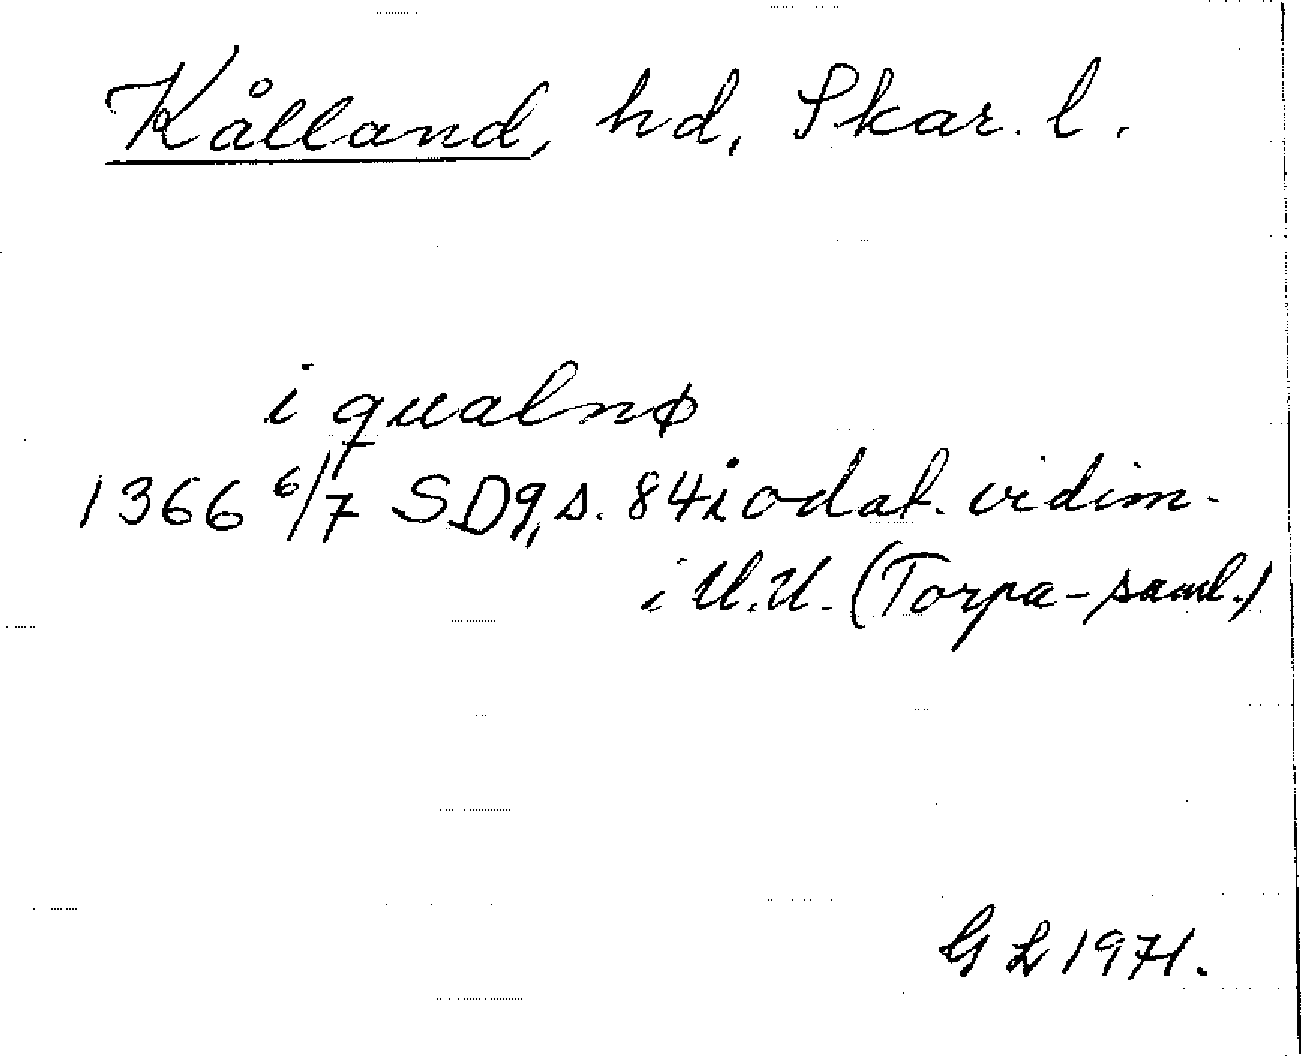 Kålland, hd, Skar. l.
i qualnø
1366 6/7 SD9, s. 84 i odat. vidim.
i U.U. (Torpa-saml.)
GL 1971.